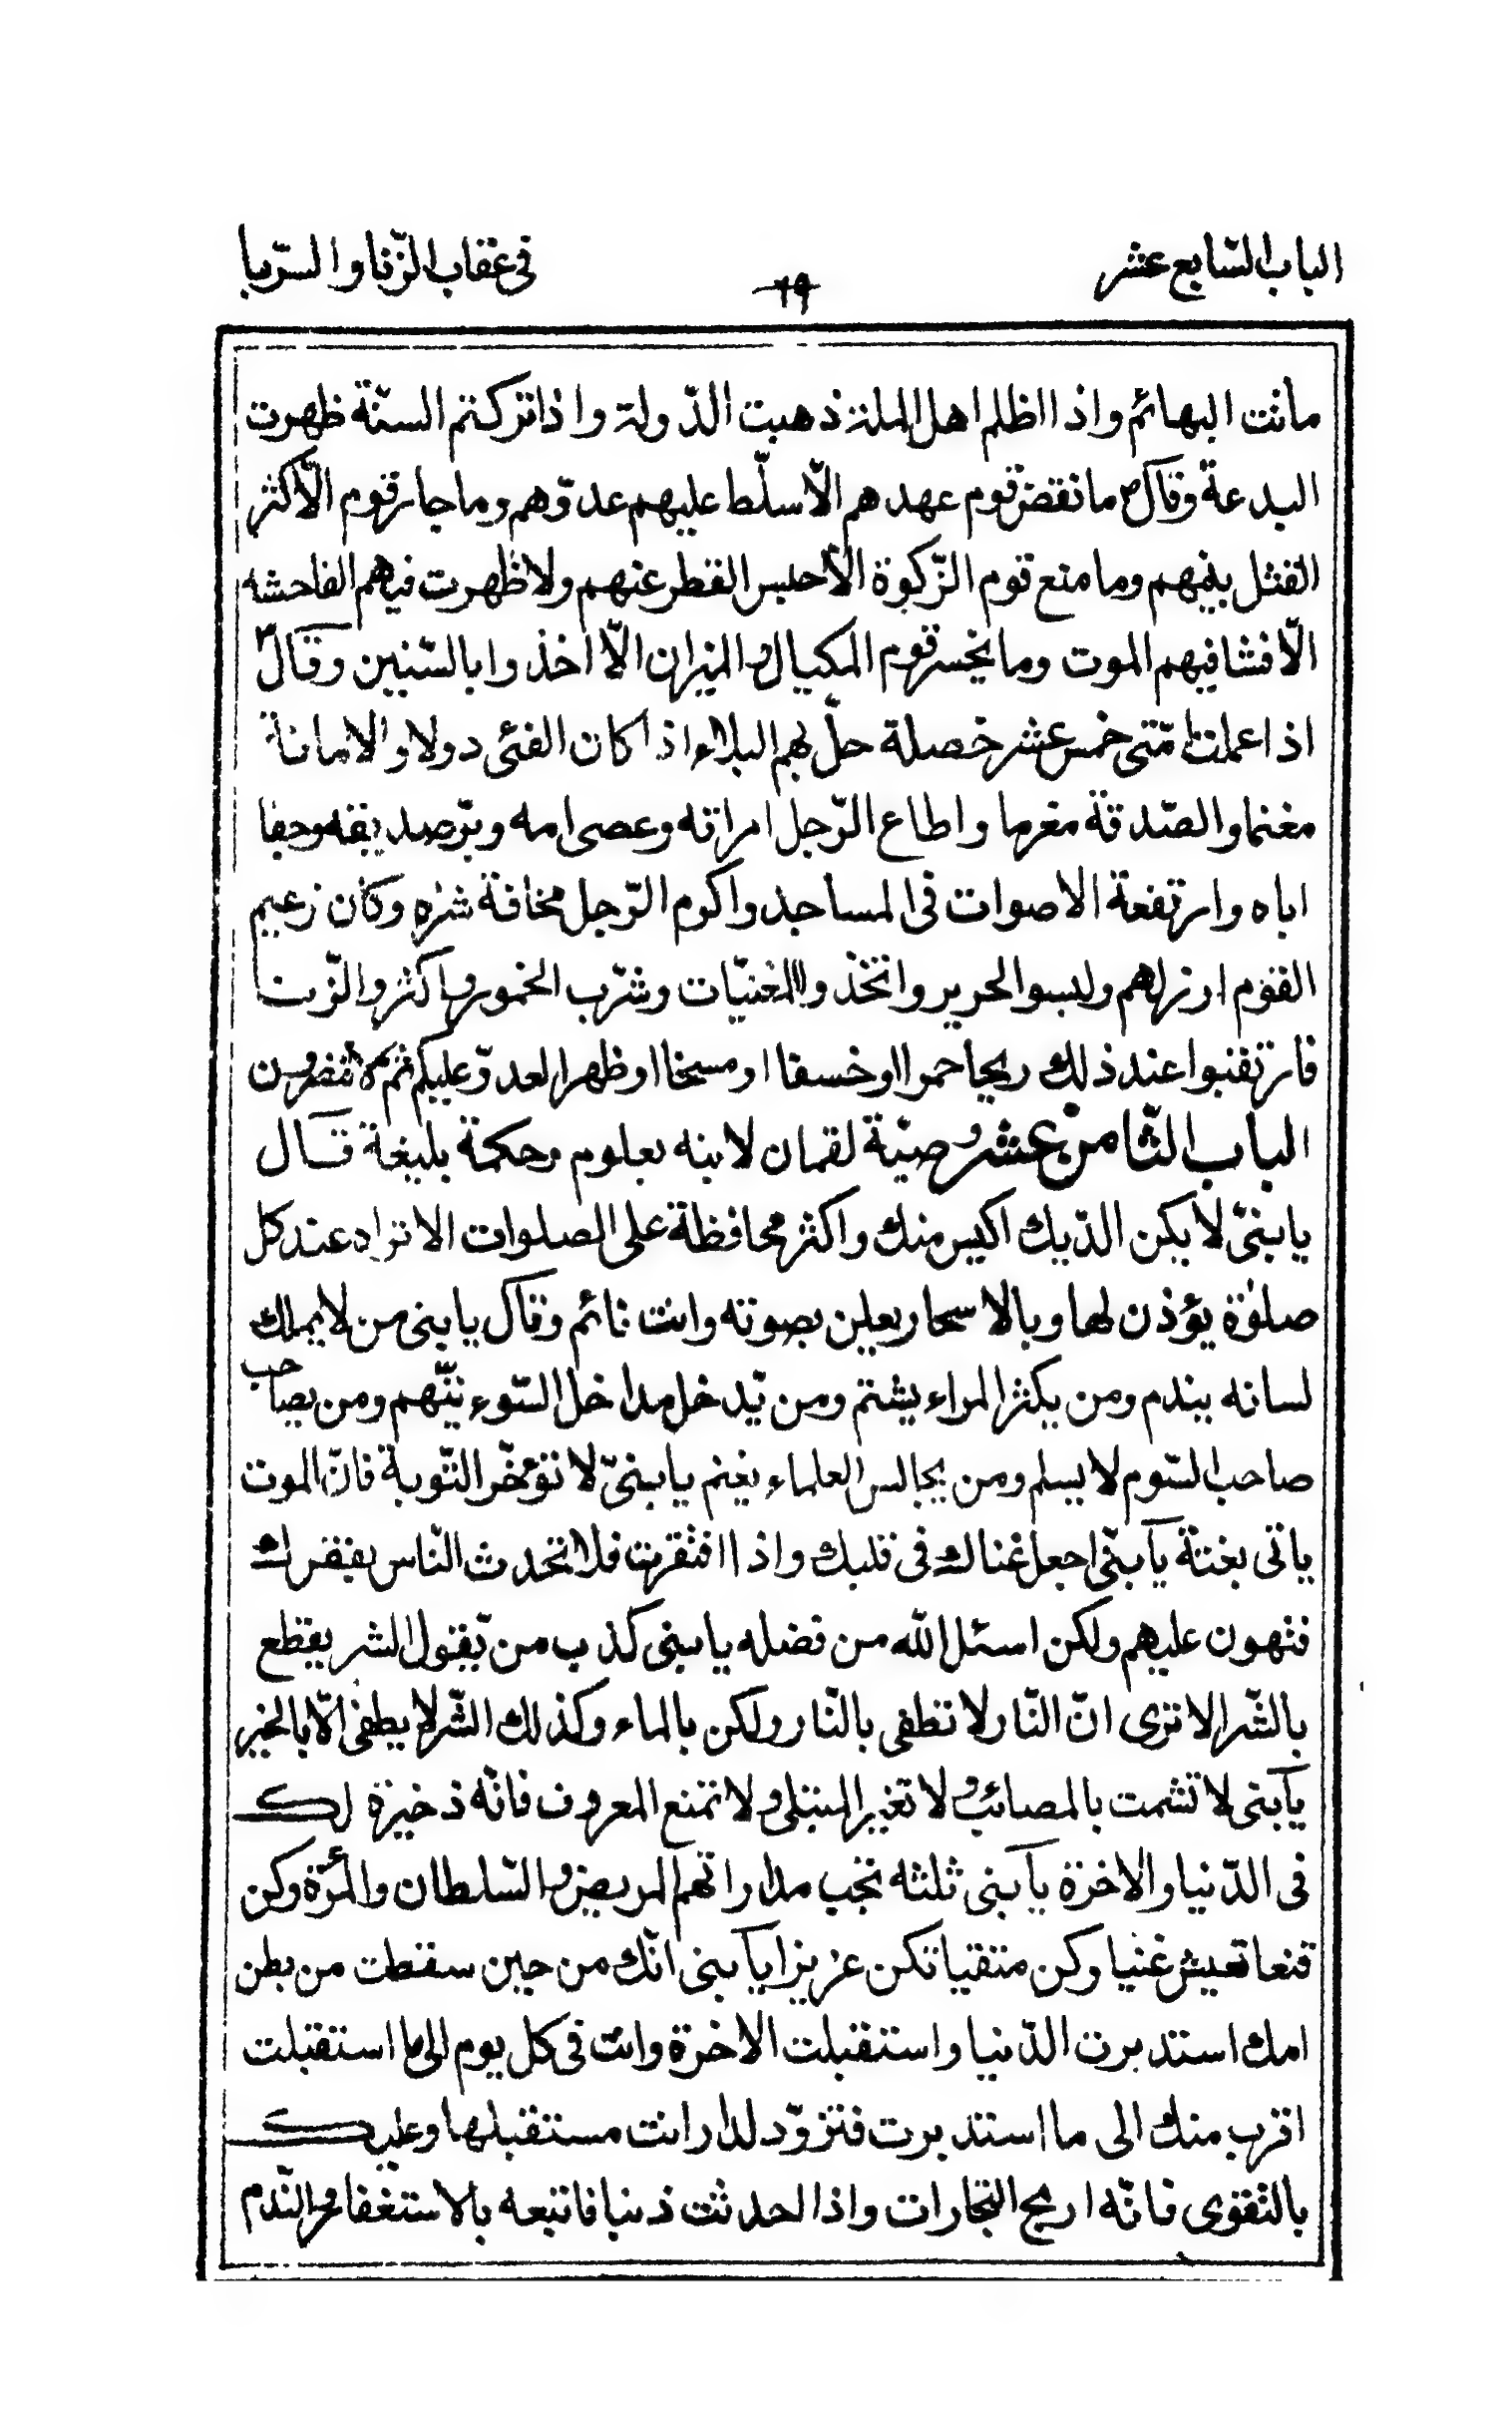 الباب السّابع عشر
٦٩
فى عقاب الزّنا والرّبا
ماتت البهائم واذا اظلم اهل الملة ذهبت الدّولة واذا تركتم السنّة ظهرت
البدعة وقال ص ما نقض قوم عهدهم الّا سلّط عليهم عدوّهم وما جار قوم الّا اكثر
القتل بينهم وما منع قوم الزّكوة الّا حبس القطر عنهم ولا ظهرت فيهم الفاحشه
الّا فشا فيهم الموت وما يخسر قوم المكيال والميزان الّا اخذوا بالسّنين وقال ص
اذا عملت امّتى خمس عشر خصلة حلّ بهم البلاء اذا كان الفئى دولا والامانة
مغنما والصّدقة مغرما واطاع الرّجل امراته وعصى امه وبرّ صديقه وجفا
اباه وارتفعة الاصوات فى المساجد واكرم الرّجل مخافة شره وكان زعيم
القوم ارزلهم ولبسوا الحرير واتّخذوا المغنيّات وشرّب الخمور واكثروا الزّنا
فارتقبوا عند ذلك ريحا حمرا او خسفا او مسخا او ظهر العدوّ عليكم ثم لا تنصرون
الباب الثّامن عشر وصيّة لقمان لابنه بعلوم وحكمة بليغة قال
يا بنىّ لا يكن الدّيك اكيس منك واكثر محافظة على الصلوات الا تراه عند كل
صلوة يؤذن لها وبالاسحار يعلن بصوته وانت نائم وقال يا بنى من لا يملك
لسانه يندم ومن يكثر المراء يشتم ومن يدخل مداخل السّوء يتّهم ومن يصاحب
صاحب السّوء لا يسلم ومن يجالس العلماء يغنم يا بنىّ لا تؤخّر التّوبة فانّ الموت
ياتى بغتة يا بنىّ اجعل غناك فى قلبك واذا افتقرت فلا تحدث النّاس بفقرك
فتهون عليهم ولكن اسئل اللّه من فضله يا بنى كذب من يقول الشر يقطع
بالشّر الا ترى انّ النّار لا تطفى بالنّار ولكن بالماء وكذلك الشّر لا يطفى الّا بالخير
يا بنى لا تشمت بالمصائب ولا تغير المبتلى ولا تمنع المعروف فانّه ذخيرة لك
فى الدّنيا والاخرة يا بنى ثلثه تجب مداراتهم المريض والسّلطان والمرة وكن
قنعا تعيش غنيا وكن متقيا تكن عزيزا يا بنى انّك من حين سقطت من بطن
امك استدبرت الدّنيا واستقبلت الاخرة وانت فى كل يوم الى ما استقبلت
اقرب منك الى ما استدبرت فتزوّد لدار انت مستقبلها وعليك
بالتّقوى فانّه اربح التّجارات واذا احدثت ذنبا فاتبعه بالاستغفار والنّدم